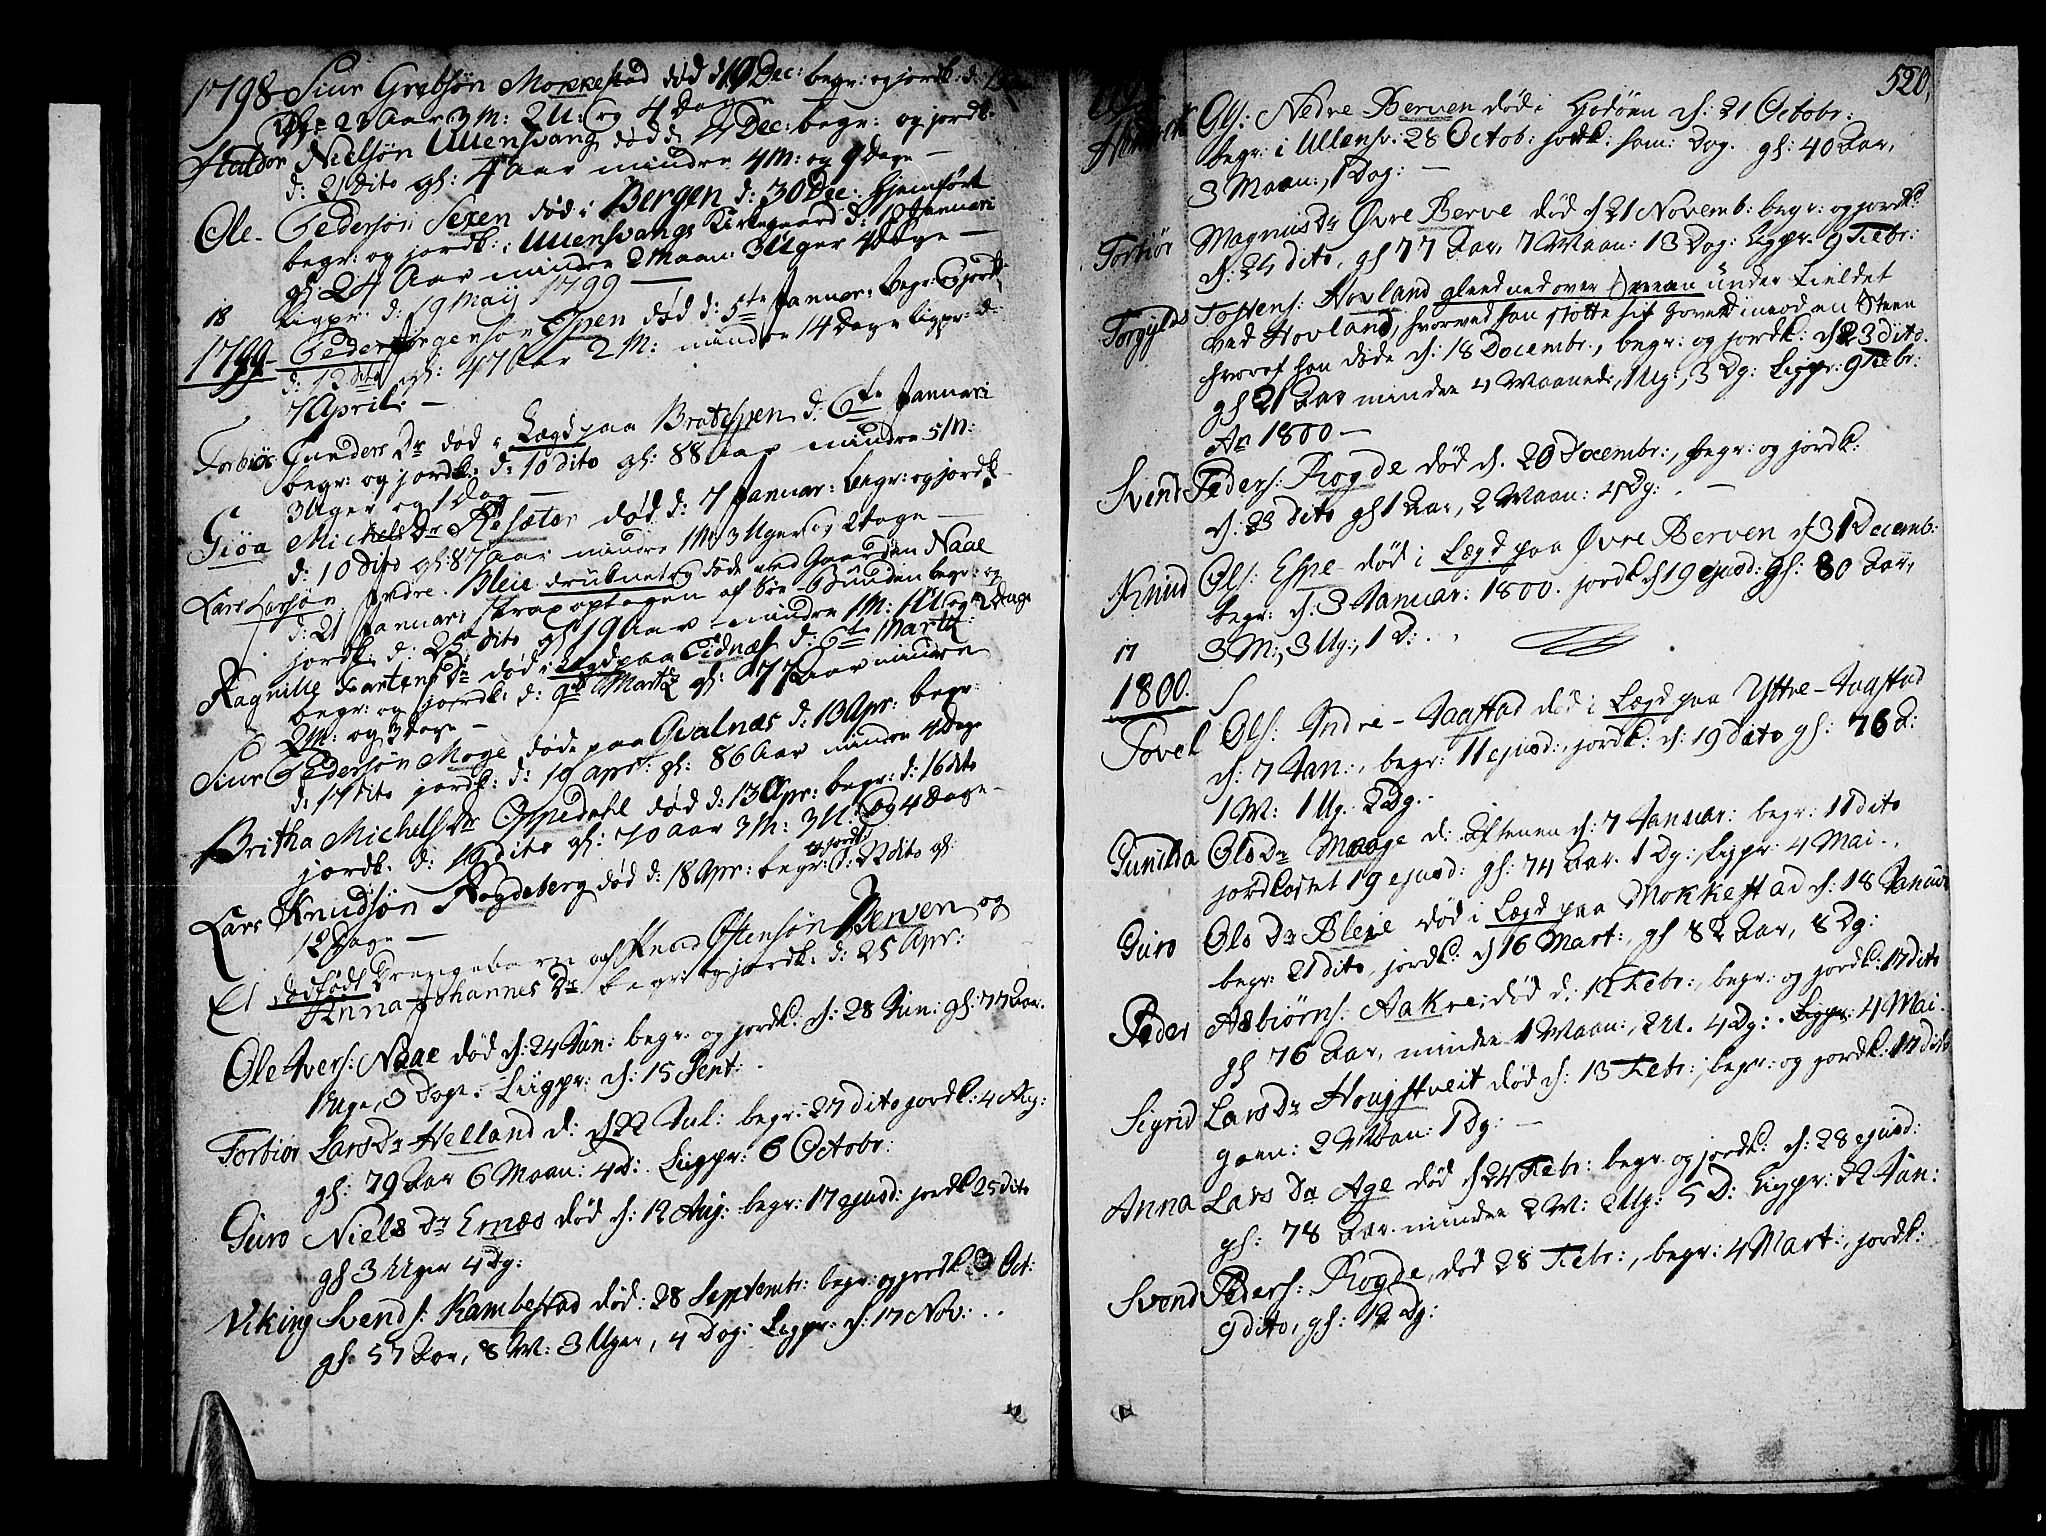 1798 Siur død d. 19 Dec: begr: og jordk: d:
22 Aar 3 M: 2 U: og 4 Dage
Haldor Nielsøn Ullensvang død d. Dec: begr: og jordk:
d: 21 dito gl: 4 Aar mindre 4 M: og 9 Dage –
Ole Pedersøn Sexen død i Bergen d: 30 Dec: hjemført
begr: og jordk: i Ullensvangs Kirkegaard d: Januari
gl: 24 Aar mindre 2 Maan: 3 Uger 4 Dage –
Ligpr: d: 19 Maij 1799 –
18
1799 Peder Jørgensøn Espen død d: 5te Januar: Begr: & jordk:
d: 12 dito gl: 47 Aar 2 M: mindre 14 Dage ligpr: d:
7 April: –
Torbiør Gunders Dr død i Lægd paa d: 6te Januari
begr: og jordk: d: 10 dito gl: 88 Aar mindre 5 M:
3 Uger og 1 Dag –
Giøa Michels Dr død d: 7 Januar: begr: og jordk:
d: 10 dito gl: 87 Aar mindre 1 M: 3 Uger og 2 Dage –
Lars Larsøn Indre Bleie druknet og døde ved Gaarden Naae
d: 21 Januar: strax optagen af Søe-Bunden begr: og
jordk: d: 25 dito gl: 19 Aar mindre 1 M: 1 U: og 2 Dage
Ragnille Dr død i Lægd paa Eidnæs d: 6te Martz:
begr: og jordk: d: 9de Martz gl: 77 Aar mindre
2 M: og 3 Dage –
Siur Pedersøn Moge døde paa Qvalnæs d: 13 Apr: begr:
d: 17 dito jordk: d: 19 Apr: gl: 86 Aar mindre 4 Dage
Britha Michels Dr Oppedahl død d: 13 Apr: begr: d: 16 dito
jordk: d: 19 dito gl: 70 Aar 3 M: 3 U: og 4 Dage –
Lars Knudsøn Rogdeberg død d: 18 Apr: begr: & jordk: d: 22 dito gl:
12 Dage –
Et dødfødt Drengebarn af Knud Ostensøn Berven og
Anna Johannes Dr begr: og jordk: d: 25 Apr:
Ole Ivers: Naae død d: 24 Jun: begr: og jordk: d: 28 Jun: gl: 77 Aar.
1 Uge, 3 Dage. Liigpr: d: 15 Sept:
Torbiør Lars Dr Helland d: d. 22 Jul: begr: 27 dito jordk: 4 Aug:
gl: 79 Aar 6 Maan: 4 D: Liigpr: 6 Octobr:
Guro Niels Dr Ernæs død d: 12 Aug: begr: 17 ejusd: jordk: 25 dito
gl 3 Uger 4 Dg:
Viking Svends: Kambestad død: 28 Septembr: begr: og jordk: 3 Oct:
gl: 57 Aar, 8 M: 3 Uger, 4 Dag: Ligpr: d: 17 Nov:
520.
Ols: Nedre Berven død i d: 21 Octobr:
begr: i Ullensv: 28 Octob: jordk: sam: Dag. gl: 40 Aar,
3 Maan:, 1 Dag: –
Torbiør Magnus Dr Øvre Berve død d. 21 Novemb: begr: og jordk:
d: 25 dito, gl 77 Aar, 7 Maan: 13 Dag: Ligpr: 9 Febr:
Torgyls Tostens: Hovland gleed ned over under Fieldet
ved Hovland, hvorved han støtte sit Hoved imod en Steen
hvoraf han døde d: 18 Decembr:, begr: og jordk: d: 23 dito.
gl 21 Aar mindre 4 Maaneder, 1 Ug:, 3 Dg: Ligpr: 9 Febr:
Ao 1800 –
Svend Peders: Rogde død d. 20 Decembr:, begr: og jordk:
d: 23 dito gl 1 Aar, 2 Maan: 4 Dg: –
Knud Ols: Espe død i Lægd paa Øvre Berven d. 31 Decemb:
begr: d: 3 Januar: 1800. jordk: d. 19 ejusd: gl: 80 Aar,
17 3 M:, 3 Ug:, 1 D:
1800.
Tovel Ols: Indre-Jaastad død i Lægd paa Yttre-Jaastad
d: 7 Jan:, begr: 11 ejusd:, jordk: d: 19 dito gl: 76 A:
1 M: 1 Ug. 2 Dg.
Gunilda Ols Dr Maage d: Aftenen d: 7 Januar: begr: 11 dito
jordkastet 19 ejusd: gl: 74 Aar. 1 Dg:, Ligpr: 4 Mai.
Guro Ols Dr Bleie død i Lægd paa Mokkestad d: 18 Januar
begr: 21 dito, jordk: d 16 Mart:, gl 82 Aar, 8 Dg:
Peder Asbiørns: Aakre død d: 12 Febr:, begr: og jordk: 17 dito
gl 76 Aar, mindre 1 Maan:, 2 U. 4 Dg: Ligpr: 4 Mai.
Sigrid Lars Dr død d: 13 Febr:, begr: og jordk: 17 dito
2 Maan: 1 Dg: –
Anna Lars Dr Age død d. 24 Febr: begr: og jordk: d: 28 ejusd:
gl: 78 Aar mindre 2 M: 2 Ug: 5 D: Ligpr: 22 Jun:
Svend Peders: Rogde, død 28 Febr:, begr: 4 Mart:, jordk:
9 dito, gl: 12 Dg: